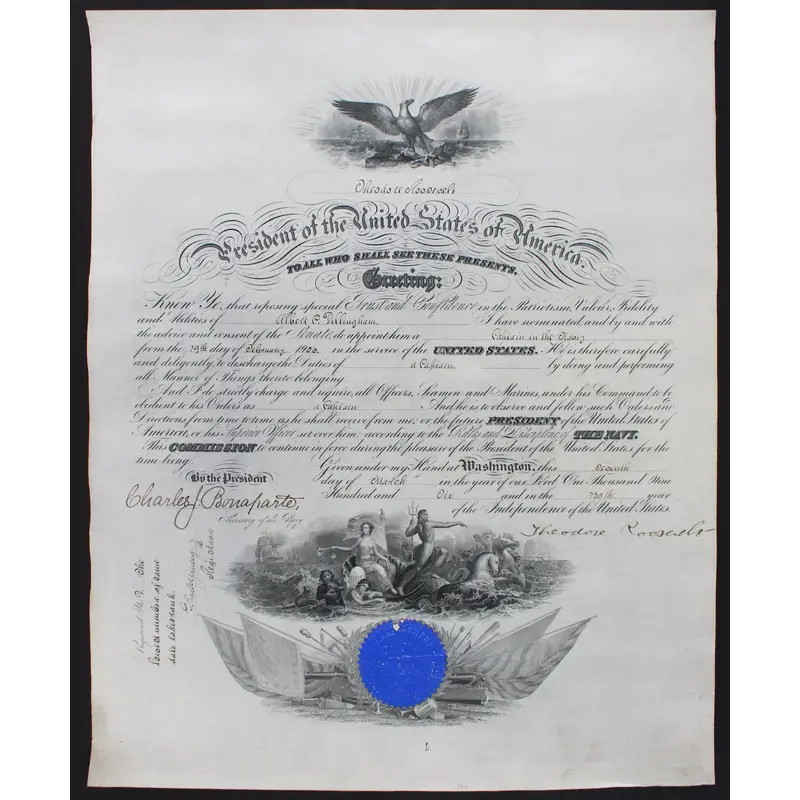 Theodore Roosevelt
President of the United States of America.
TO ALL WHO SHALL SEE THESE PRESENTS,
Greeting:
Know Ye, that reposing special Trust and Confidence in the Patriotism, Valour, Fidelity
and Abilities of Albert C. Dillingham, I have nominated, and by and with
the advice and consent of the Senate, do appoint him a Captain in the Navy
from the 19th day of February, 190 in the service of the UNITED STATES. He is therefore carefully
and diligently to discharge the Duties of a Captain by doing and performing
all Manner of Things thereto belonging.
And I do strictly charge and require, all Officers, Seamen and Marines, under his Command to be
obedient to his Orders as a Captain And he is to observe and follow such Orders and
Directions from time to time as he shall receive from me, or the future PRESIDENT of the United States of
America, or his Superior Officer set over him, according to the Rules and Discipline of THE NAVY.
This COMMISSION to continue in force during the pleasure of the President of the United States for the
time being.
By the President
Given under my Hand at Washington, this seventh
day of March in the year of our Lord One Thousand Nine
Hundred and Six and in the 130th year
of the Independence of the United States
Charles J. Bonaparte,
Secretary of the Navy
Theodore Roosevelt
number of same
date takes rank.